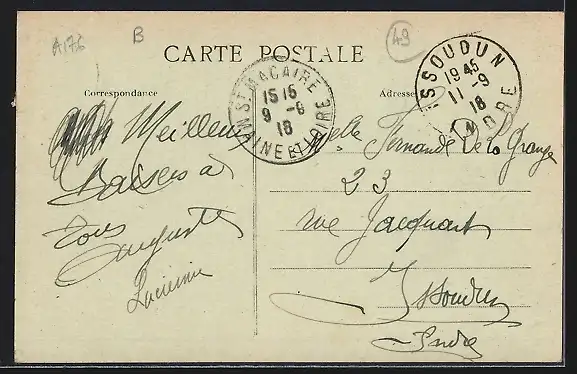 A176
B
49
CARTE POSTALE
Correspondance
Adresse
ST MACAIRE
15 15
9 -8
18
MAINE ET LOIRE
ISSOUDUN
19 45
11 -9
18
INDRE
Meilleurs
Baisers à
tous
Auguste
Lucienne
Melle Fernande De La Grange
23
rue Jacquart
Issoudun
Indre